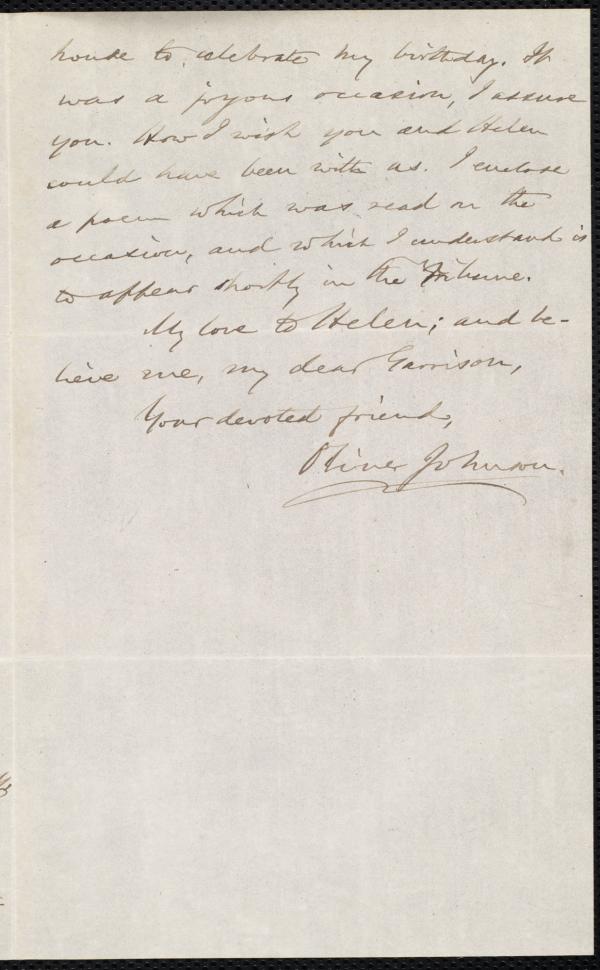 house to celebrate my birthday. It
was a joyous occasion, I assure
you. How I wish you and Helen
could have been with us. I enclose
a poem which was read on the
occasion, and which I understand is
to appear shortly in the Tribune.
My love to Helen; and be-
lieve me, my dear Garrison,
Your devoted friend,
Oliver Johnson.